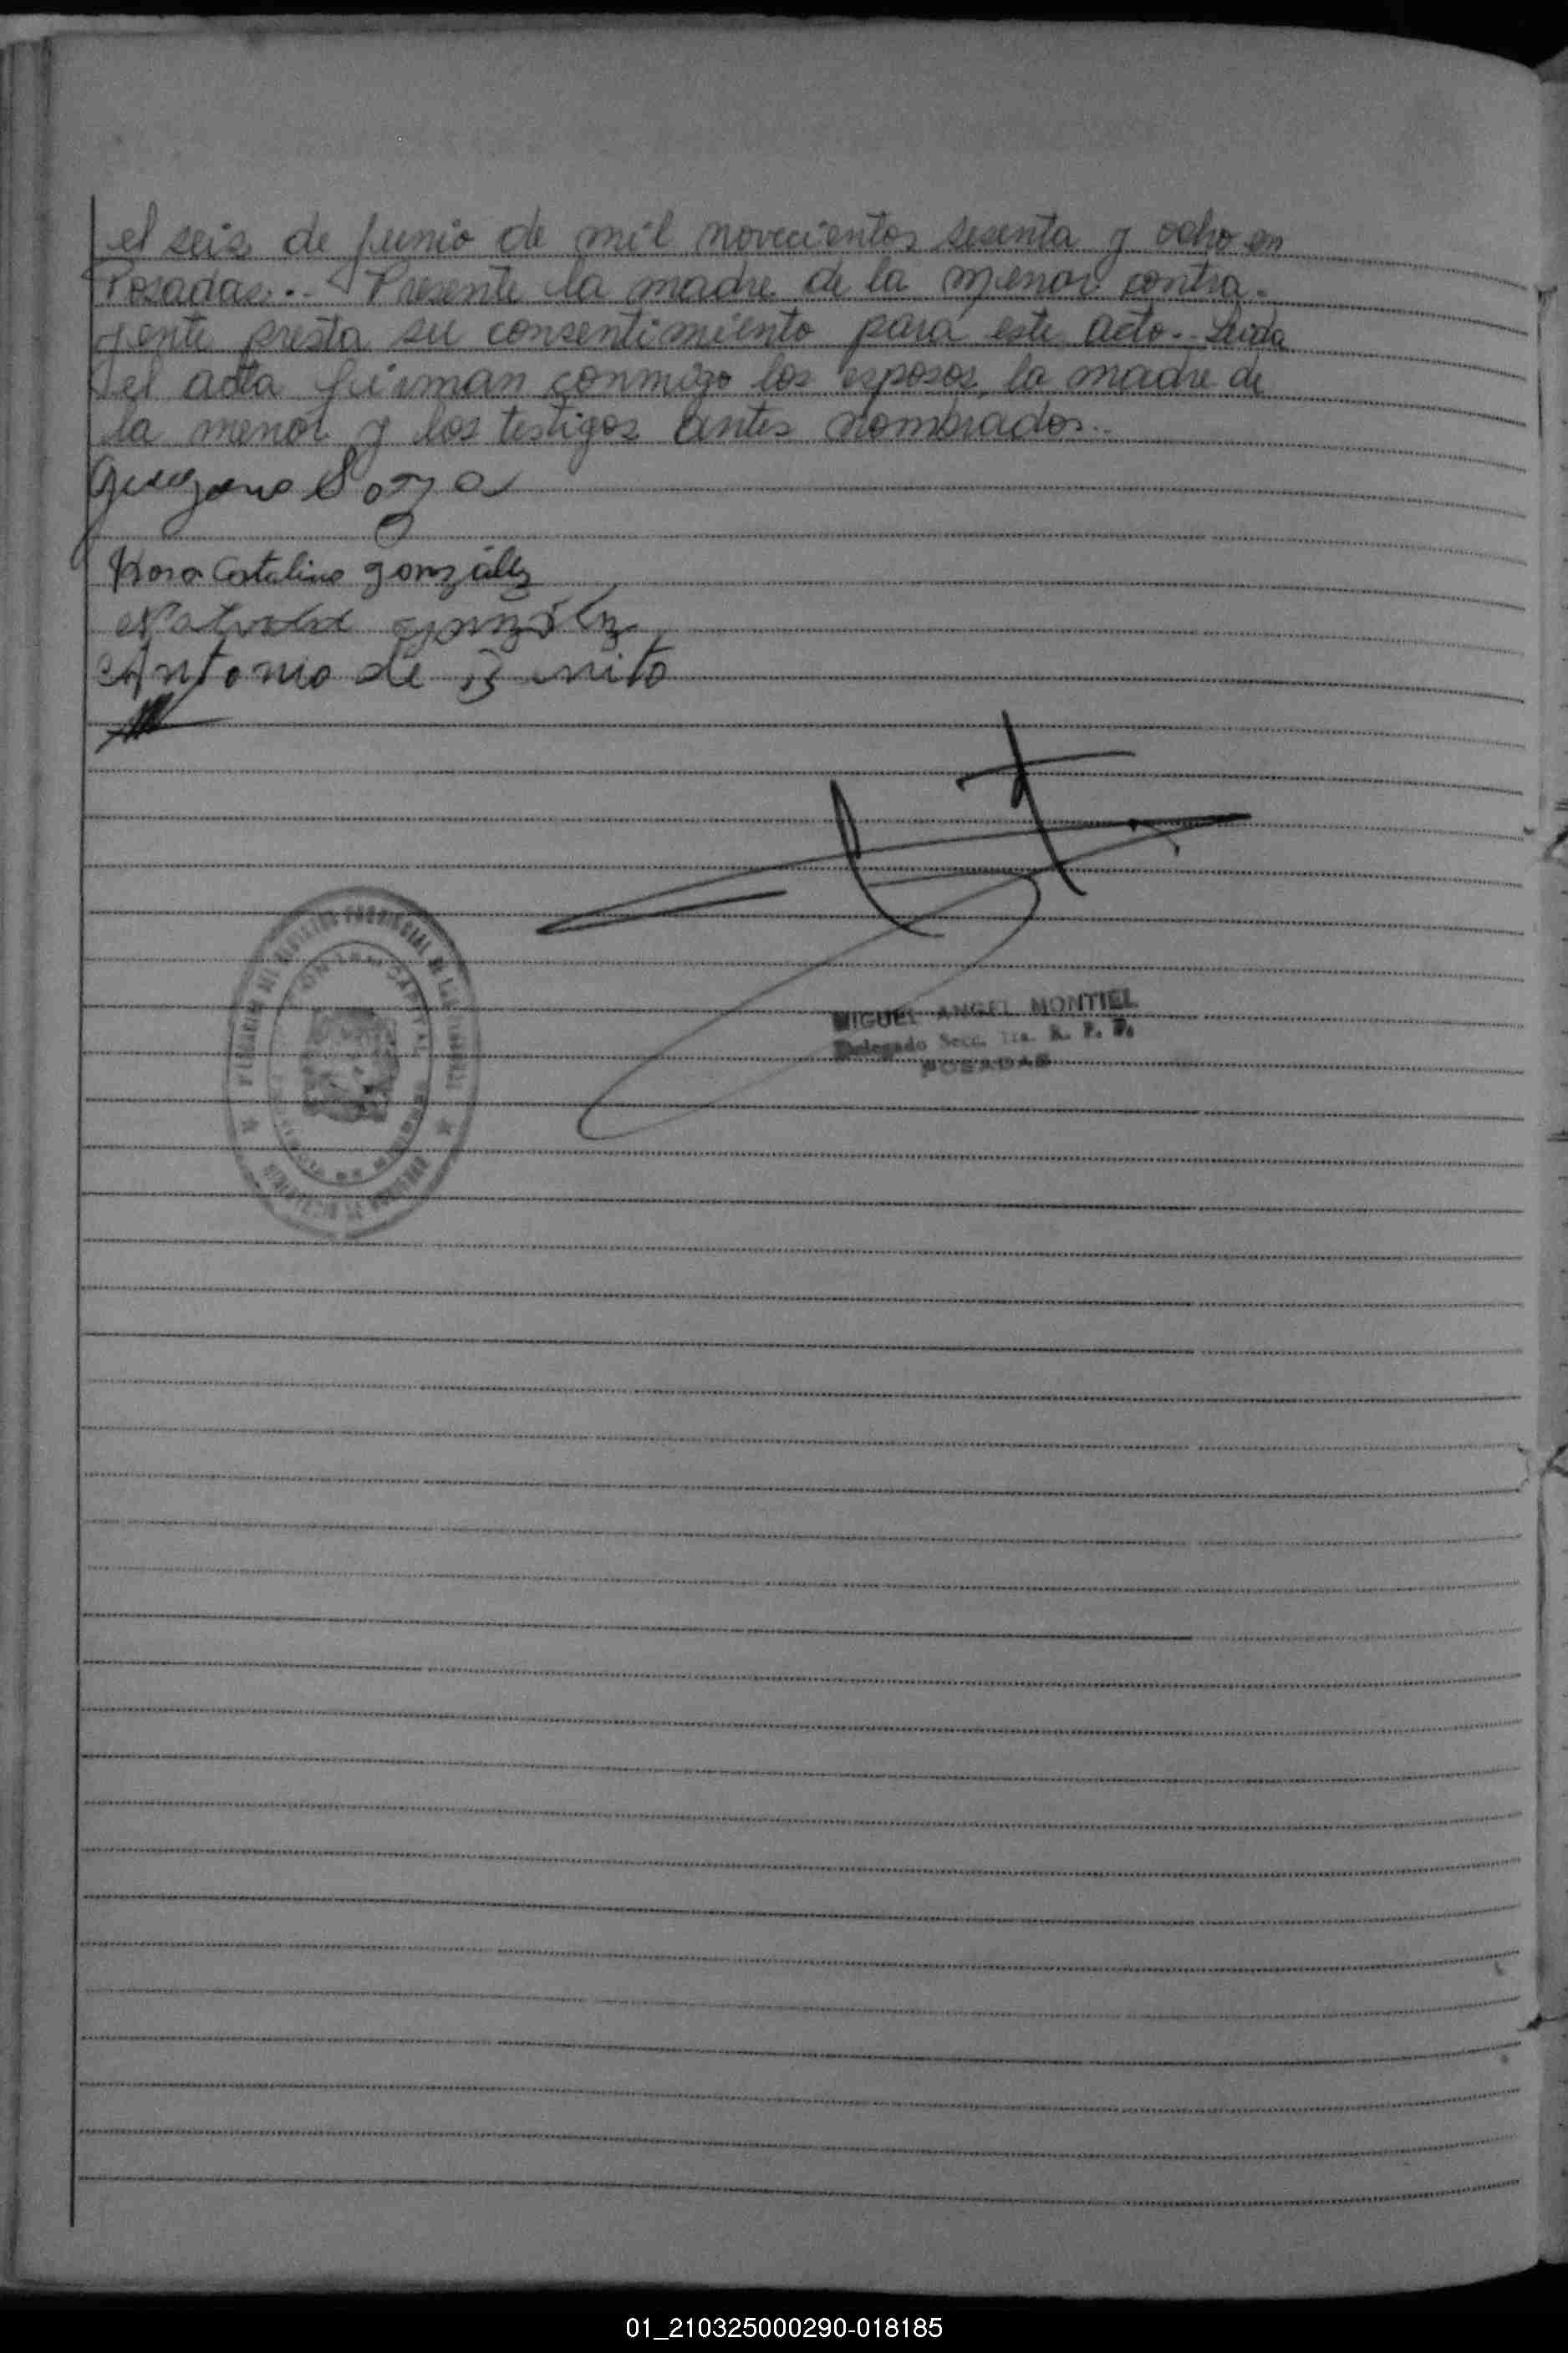 el seis de junio de mil novecientos sesenta y ocho en
Posadas.- Presente la madre de la menor contra-
yente presta su consentimiento para este acto.- Leida
el acta firman conmigo los esposos, la madre de
la menor y los testigos antes nombrados.-
Rosa Catalina González
González
Antonio de Benito
MIGUEL ANGEL MONTIEL
Delegado Secc. 1ra. R. P. P.
POSADAS
01_210325000290-018185